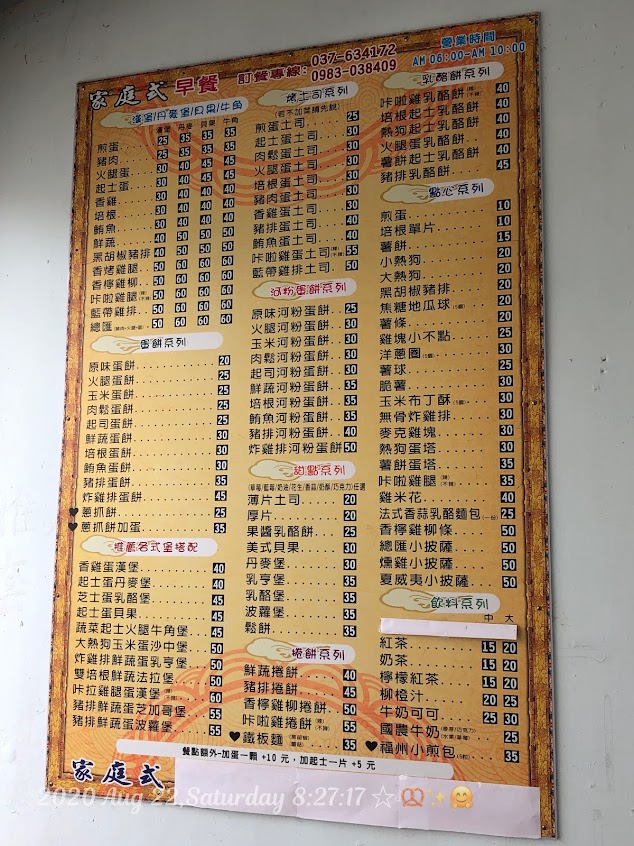 家庭式 早餐 訂餐專線: 037-634172
0983-038409
營業時間
AM 06:00-AM 10:00
漢堡/丹麥堡/貝果/牛角
漢堡 丹麥 貝果 牛角
煎蛋 25 35 35 35
豬肉 35 40 40 40
火腿蛋 30 40 40 40
起士蛋 30 40 40 40
香雞
培根
鮪魚
鮮蔬
黑胡椒豬排 40 50 50 50
香烤雞腿 50 60 60 60
香檸雞柳 50 60 60 60
咔啦雞腿(辣)(不辣) 50 60 60 60
藍帶雞排 50 60 60 60
總匯 50 60 60 60
蛋餅系列
原味蛋餅 20
火腿蛋餅 25
玉米蛋餅 25
肉鬆蛋餅 25
起司蛋餅 25
鮮蔬蛋餅 30
培根蛋餅 30
鮪魚蛋餅 30
豬排蛋餅 35
炸雞排蛋餅 45
♥蔥抓餅 25
♥蔥抓餅加蛋 35
推薦各式堡搭配
香雞蛋漢堡 40
起士蛋丹麥堡 40
芝士蛋乳酪堡 45
起士蛋貝果 45
蔬菜起士火腿牛角堡 45
大熱狗玉米蛋沙中堡 50
炸雞排鮮蔬蛋乳亨堡 50
雙培根鮮蔬法拉堡 50
咔拉雞腿蛋漢堡(辣)(不辣) 60
豬排鮮蔬蛋芝加哥堡 55
豬排鮮蔬蛋波蘿堡 55
烤土司系列
(若不加菜請先說)
煎蛋土司 25
起士蛋土司 30
肉鬆蛋土司 30
火腿蛋土司 30
培根蛋土司 30
豬肉蛋土司 35
香雞蛋土司 30
豬排蛋土司 40
鮪魚蛋土司 40
咔啦雞蛋土司(辣)(不辣) 55
藍帶雞排土司 50
河粉蛋餅系列
原味河粉蛋餅 25
火腿河粉蛋餅 30
玉米河粉蛋餅 30
肉鬆河粉蛋餅 30
起司河粉蛋餅 30
鮮蔬河粉蛋餅 35
培根河粉蛋餅 35
鮪魚河粉蛋餅 35
豬排河粉蛋餅 40
炸雞排河粉蛋餅 50
甜點系列
(草莓/藍莓/奶油/花生/香蒜/奶酥/巧克力)任選
薄片土司 20
厚片 25
果醬乳酪餅 25
美式貝果 30
丹麥堡 30
乳亨堡 35
乳酪堡 35
波蘿堡 35
鬆餅 35
捲餅系列
鮮蔬捲餅 40
豬排捲餅 45
香檸雞柳捲餅 50
咔啦雞捲餅(辣)(不辣) 50
♥鐵板麵(黑胡椒)(蘑菇) 35
乳酪餅系列
咔啦雞乳酪餅 40
培根起士乳酪餅 40
熱狗起士乳酪餅 40
火腿蛋乳酪餅 40
薯餅起士乳酪餅 40
豬排乳酪餅 45
點心系列
煎蛋 10
培根單片 10
薯餅 15
小熱狗 20
大熱狗 20
黑胡椒豬排 20
焦糖地瓜球 20
薯條 20
雞塊小不點 25
洋蔥圈 30
薯球 25
脆薯 30
玉米布丁酥 30
無骨炸雞排 30
麥克雞塊 30
熱狗蛋塔 30
薯餅蛋塔 35
咔啦雞腿(辣)(不辣) 35
雞米花 40
法式香蒜乳酪麵包(一份) 25
香檸雞柳條 50
總匯小披薩 50
燻雞小披薩 50
夏威夷小披薩 50
飲料系列
中 大
紅茶 15 20
奶茶 15 20
檸檬紅茶 15 20
柳橙汁 20 25
牛奶可可 25
國農牛奶 30
♥福州小煎包 35
餐點額外-加蛋一顆 +10 元，加起士一片 +5 元
家庭式
2020 Aug 22,Saturday 8:27:17 ☆🥨✨🤗